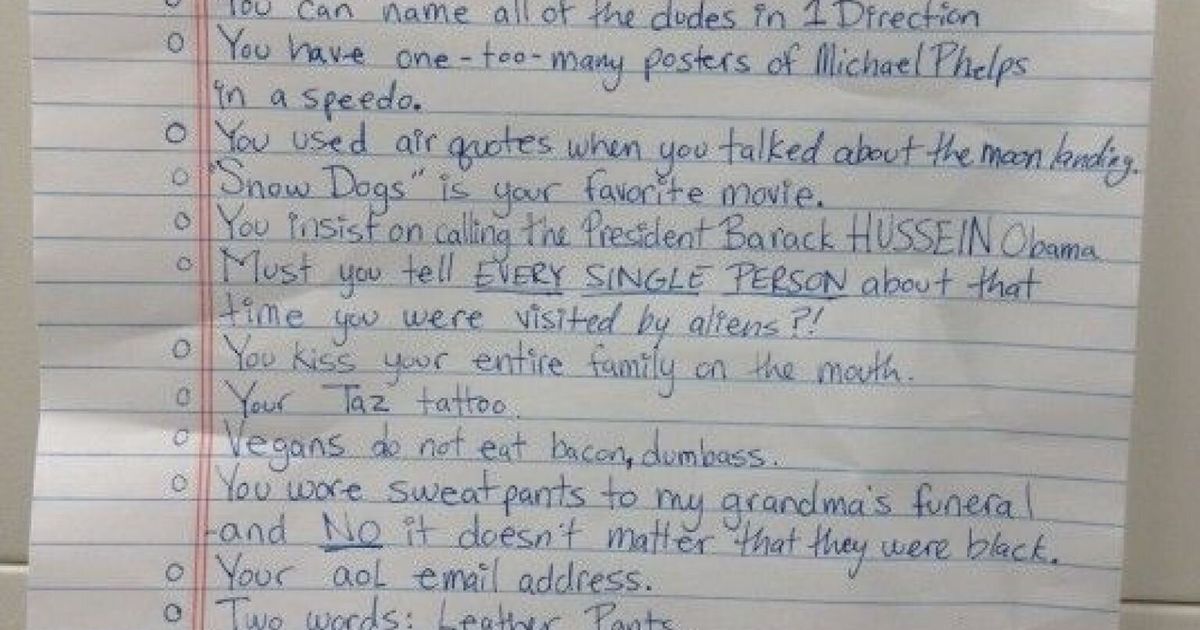 You can name all of the dudes in 1 Direction
You have one-too-many posters of Michael Phelps
in a speedo.
You used air quotes when you talked about the moon landing.
"Snow Dogs" is your favorite movie.
You insist on calling the President Barack HUSSEIN Obama
Must you tell EVERY SINGLE PERSON about that
time you were visited by aliens?!
You kiss your entire family on the mouth.
Your Taz tattoo.
Vegans do not eat bacon, dumbass.
You wore sweatpants to my grandma's funeral
-and NO it doesn't matter that they were black.
Your aol email address.
Two words: Leather Pants